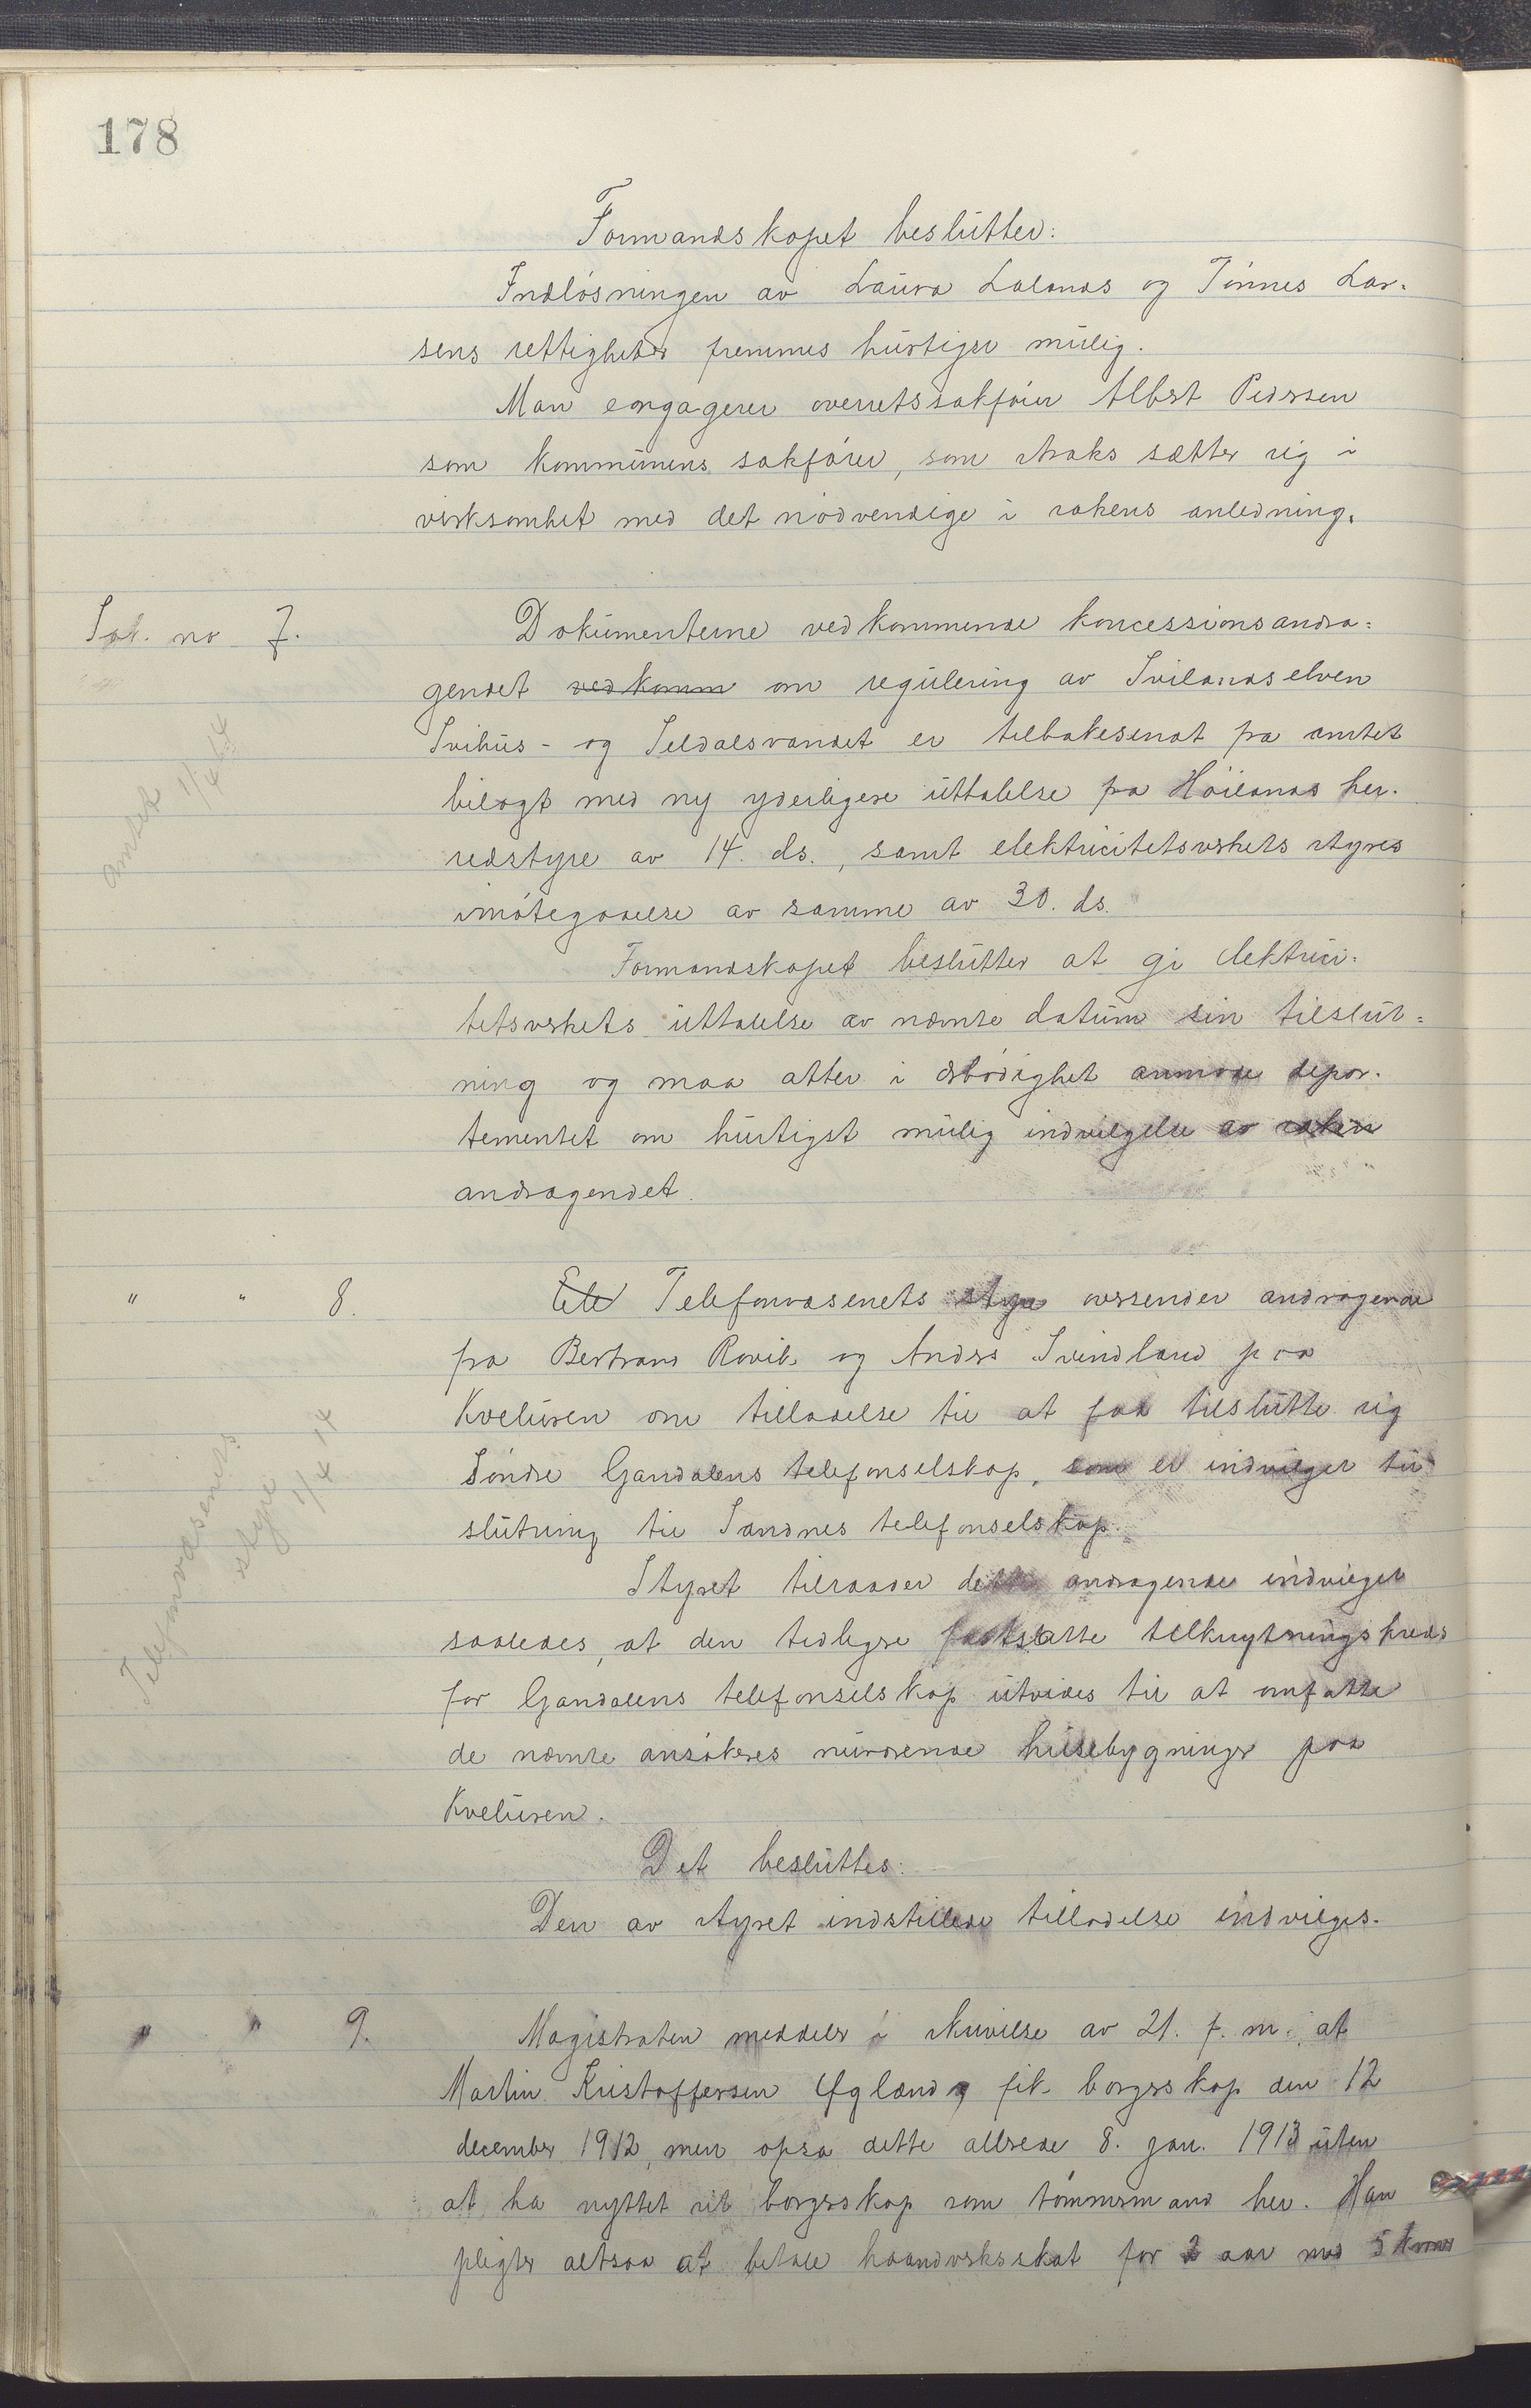 178
Formandskapet beslutter:
Indløsningen av Laura Lalands og Tønnes Lar-
sens rettigheter fremmes hurtigst mulig.
Man engagerer overretssakfører Albert Pedersen
som kommunens sakfører, som straks sætter sig i
virksomhet med det nødvendige i sakens anledning.
Sak. no 7.
Dokumenterne vedkommende koncessionsandra-
gendet vedkomm om regulering av Svilandselven
Svihus- og Seldalsvandet er tilbakesendt fra amtet
bilagt med ny yderligere uttalelse fra Höilands her-
redstyre av 14. ds., samt elektricitetsverkets styres
imøtegaaelse av samme av 30. ds.
amtet 1/4 14
Formandskapet beslutter at gi elektrici-
tetsverkets uttalelse av nævnte datum sin tilslut-
ning og maa atter i ærbødighet anmode depar-
tementet om hurtigst mulig indvilgelse av saken
andragendet.
" " 8.
Ele Telefonvæsenets styre oversender andragende
fra Bertrand Rovik og Anders Svindland paa
Kveluren om tilladelse til at faa tilslutte sig
Söndre Gandalens telefonselskap, som er indvilget til
slutning til Sandnes telefonselskap.
Telefonvæsenets
styre 1/4 14
Styret tilraader dette andragende indvilget
saaledes, at den tidligere fastsatte tilknytningskreds
for Gandalens telefonselskap utvides til at omfatte
de nævnte ansøkeres nuværende husebygninger paa
Kveluren.
Det besluttes:
Den av styret indstillede tilladelse indvilges.
" " 9.
Magistraten meddeler i skrivelse av 21. f. m. at
Martin Kristoffersen Øgland fik borgerskap den 12
december 1912, men opsa dette allerede 8. jan. 1913 uten
at ha nyttet sit borgerskap som tømmermand her. Han
pligter altsaa at betale haandverksskat for 2 aar med 5 kroner